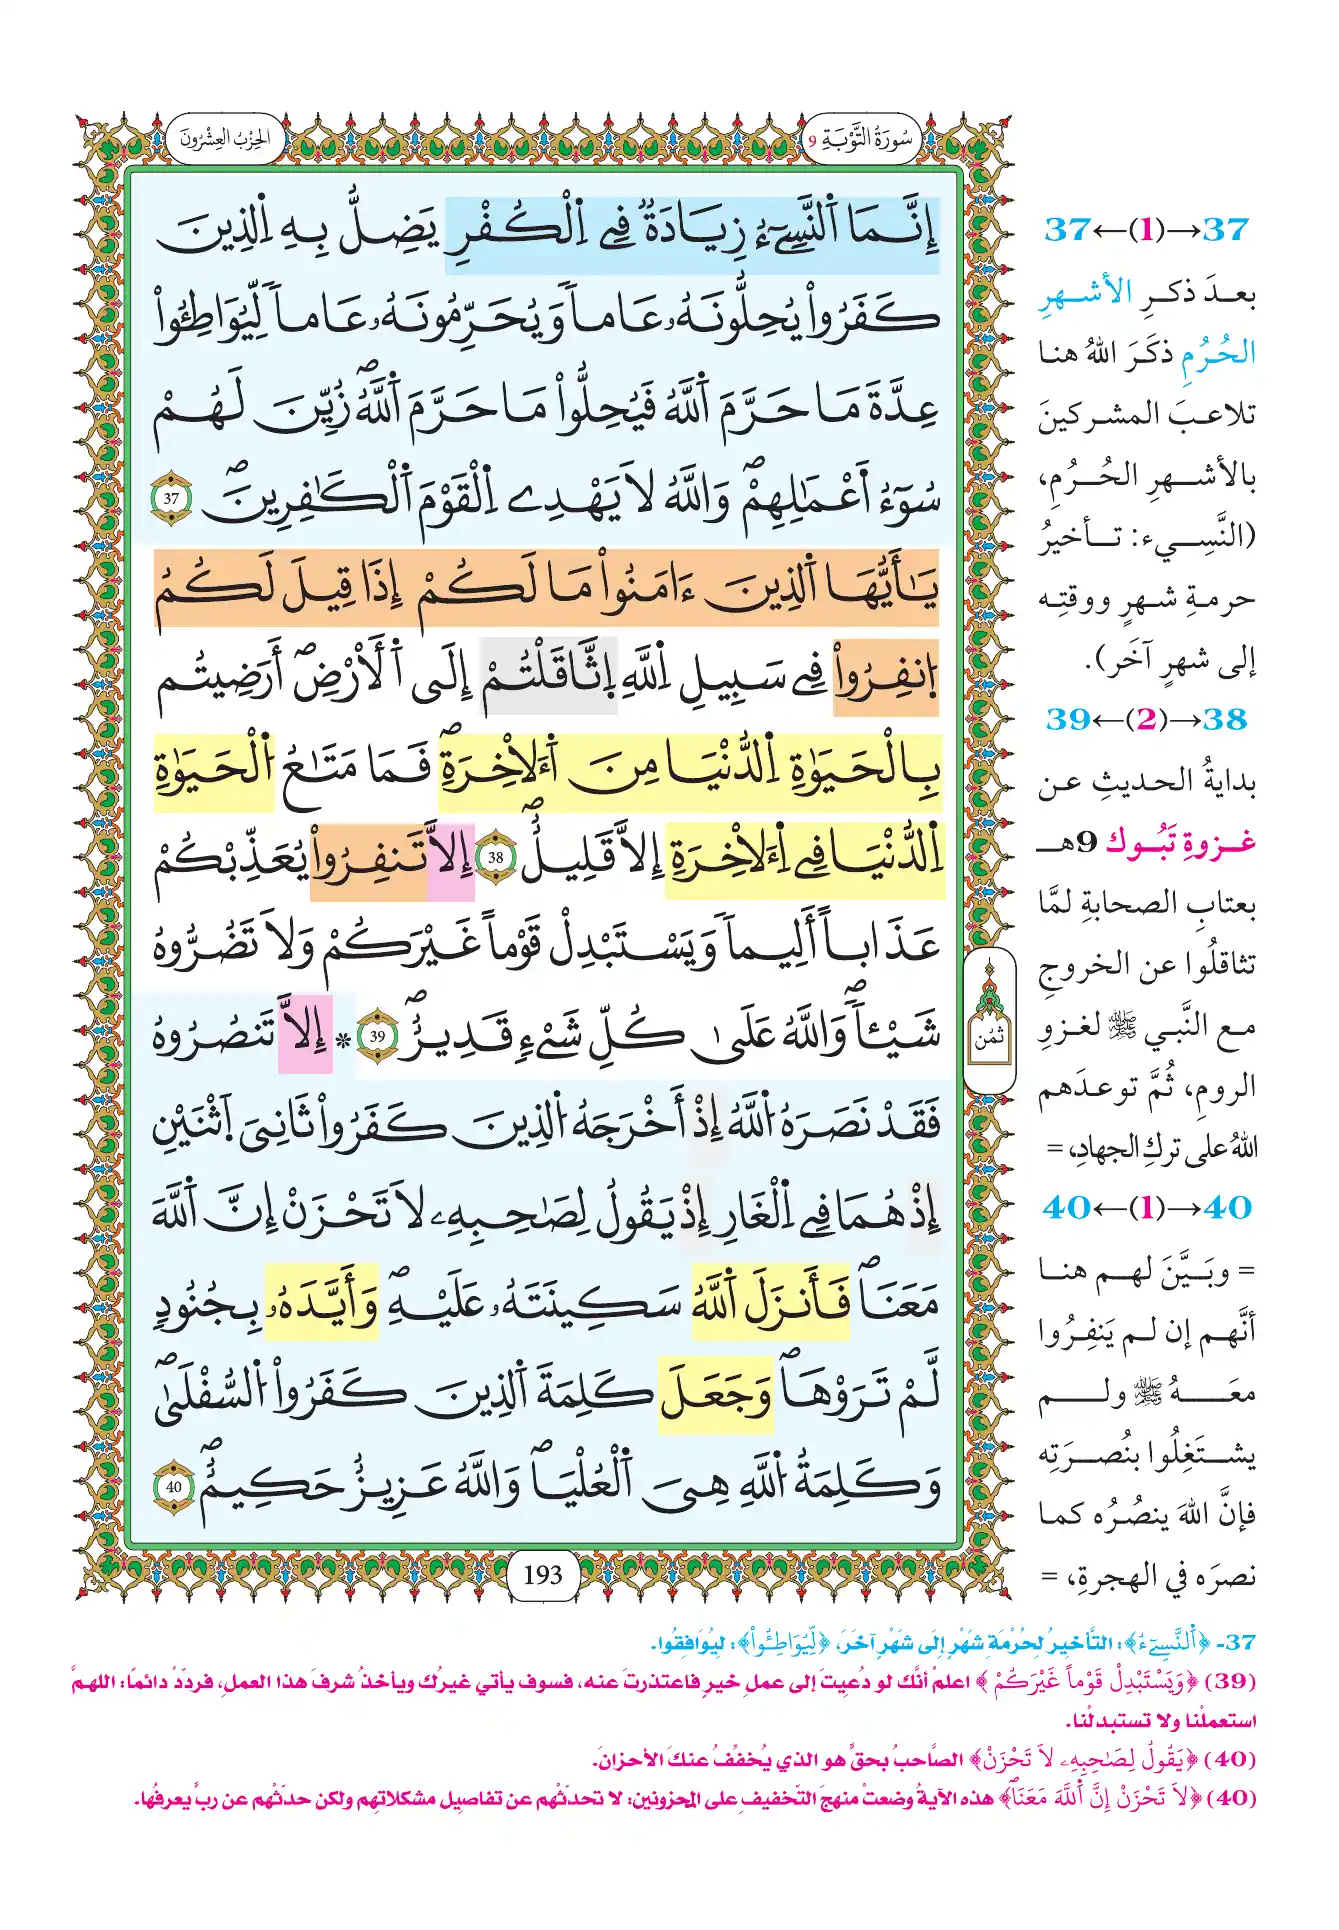 سُورَةُ التَّوْبَةِ 9
الحِزْبُ العِشْرُونَ
إِنَّمَا اَ۬لنَّسِيٓءُ زِيَادَةٞ فِے اِ۬لْكُفْرِ يَضِلُّ بِهِ اِ۬لذِينَ
كَفَرُواْ يُحِلُّونَهُۥ عَاماٗ وَيُحَرِّمُونَهُۥ عَاماٗ لِّيُوَاطِـُٔواْ
عِدَّةَ مَا حَرَّمَ اَ۬للَّهُ فَيُحِلُّواْ مَا حَرَّمَ اَ۬للَّهُۖ زُيِّنَ لَهُمْ
سُوٓءُ اَعْمَٰلِهِمْۖ وَاللَّهُ لَا يَهْدِے اِ۬لْقَوْمَ اَ۬لْكَٰفِرِينَۖ 37
يَٰأَيُّهَا اَ۬لذِينَ ءَامَنُواْ مَا لَكُمْ إِذَا قِيلَ لَكُمُ
اُ۪نفِرُواْ فِے سَبِيلِ اِ۬للَّهِ اِ۪ثَّاقَلْتُمْ إِلَى اَ۬لْأَرْضِۖ أَرَضِيتُم
بِالْحَيَوٰةِ اِ۬لدُّنْيَا مِنَ اَ۬لْأٓخِرَةِۖ فَمَا مَتَٰعُ اُ۬لْحَيَوٰةِ
اِ۬لدُّنْيَا فِے اِ۬لْأٓخِرَةِ إِلَّا قَلِيلٌۖ 38 إِلَّا تَنفِرُواْ يُعَذِّبْكُمْ
عَذَاباً أَلِيماٗ وَيَسْتَبْدِلْ قَوْماً غَيْرَكُمْ وَلَا تَضُرُّوهُ
شَيْـٔاٗۖ وَاللَّهُ عَلَىٰ كُلِّ شَےْءٖ قَدِيرٌۖ 39 * إِلَّا تَنصُرُوهُ
فَقَدْ نَصَرَهُ اُ۬للَّهُ إِذْ أَخْرَجَهُ اُ۬لذِينَ كَفَرُواْ ثَانِيَ اَ۪ثْنَيْنِ
إِذْ هُمَا فِے اِ۬لْغَارِ إِذْ يَقُولُ لِصَٰحِبِهِۦ لَا تَحْزَنْ إِنَّ اَ۬للَّهَ
مَعَنَاۖ فَأَنزَلَ اَ۬للَّهُ سَكِينَتَهُۥ عَلَيْهِۖ وَأَيَّدَهُۥ بِجُنُودٖ
لَّمْ تَرَوْهَاۖ وَجَعَلَ كَلِمَةَ اَ۬لذِينَ كَفَرُواْ اُ۬لسُّفْلَىٰۖ
وَكَلِمَةُ اُ۬للَّهِ هِيَ اَ۬لْعُلْيَاۖ وَاللَّهُ عَزِيزٌ حَكِيمٌۖ 40
ثُمُن
193
37←(1)→37
بعدَ ذكرِ الأشهرِ
الحُرُمِ ذكَرَ اللهُ هنا
تلاعبَ المشركينَ
بالأشهرِ الحُرُمِ،
(النَّسِيء: تأخيرُ
حرمةِ شهرٍ ووقتِه
إلى شهرٍ آخَر).
39←(2)→38
بدايةُ الحديثِ عن
غزوةِ تَبُوك 9هـ
بعتابِ الصحابةِ لمَّا
تثاقلُوا عن الخروجِ
مع النَّبي ﷺ لغزوِ
الرومِ، ثُمَّ توعدَهم
اللهُ على تركِ الجهادِ، =
40←(1)→40
= وبَيَّنَ لهم هنا
أنَّهم إن لم يَنفِرُوا
معَهُ ﷺ ولم
يشتَغِلُوا بنُصرَتِه
فإنَّ اللهَ ينصُرُه كما
نصرَه في الهجرةِ، =
37- ﴿اَ۬لنَّسِيٓءُ﴾: التَّأخيرُ لِحُرْمَةِ شَهْرٍ إِلَى شَهْرٍ آخَرَ، ﴿لِّيُوَاطِـُٔواْ﴾: لِيُوَافِقُوا.
(39) ﴿وَيَسْتَبْدِلْ قَوْماً غَيْرَكُمْ﴾ اعلمْ أنَّك لو دُعِيتَ إلى عملِ خيرٍ فاعتذرتَ عنه، فسوف يأتي غيرُك ويأخذُ شرفَ هذا العملِ، فردّدْ دائمًا: اللهمَّ
استعملْنا ولا تستبدلْنا.
(40) ﴿يَقُولُ لِصَٰحِبِهِۦ لَا تَحْزَنْ﴾ الصَّاحبُ بحقٍّ هو الذي يُخفِّفُ عنكَ الأحزانَ.
(40) ﴿لَا تَحْزَنْ إِنَّ اَ۬للَّهَ مَعَنَاۖ﴾ هذه الآيةُ وضعتْ منهجَ التّخفيفِ على المحزونين: لا تحدّثْهم عن تفاصيلِ مشكلاتِهم ولكن حدّثْهم عن ربٍّ يعرفُها.